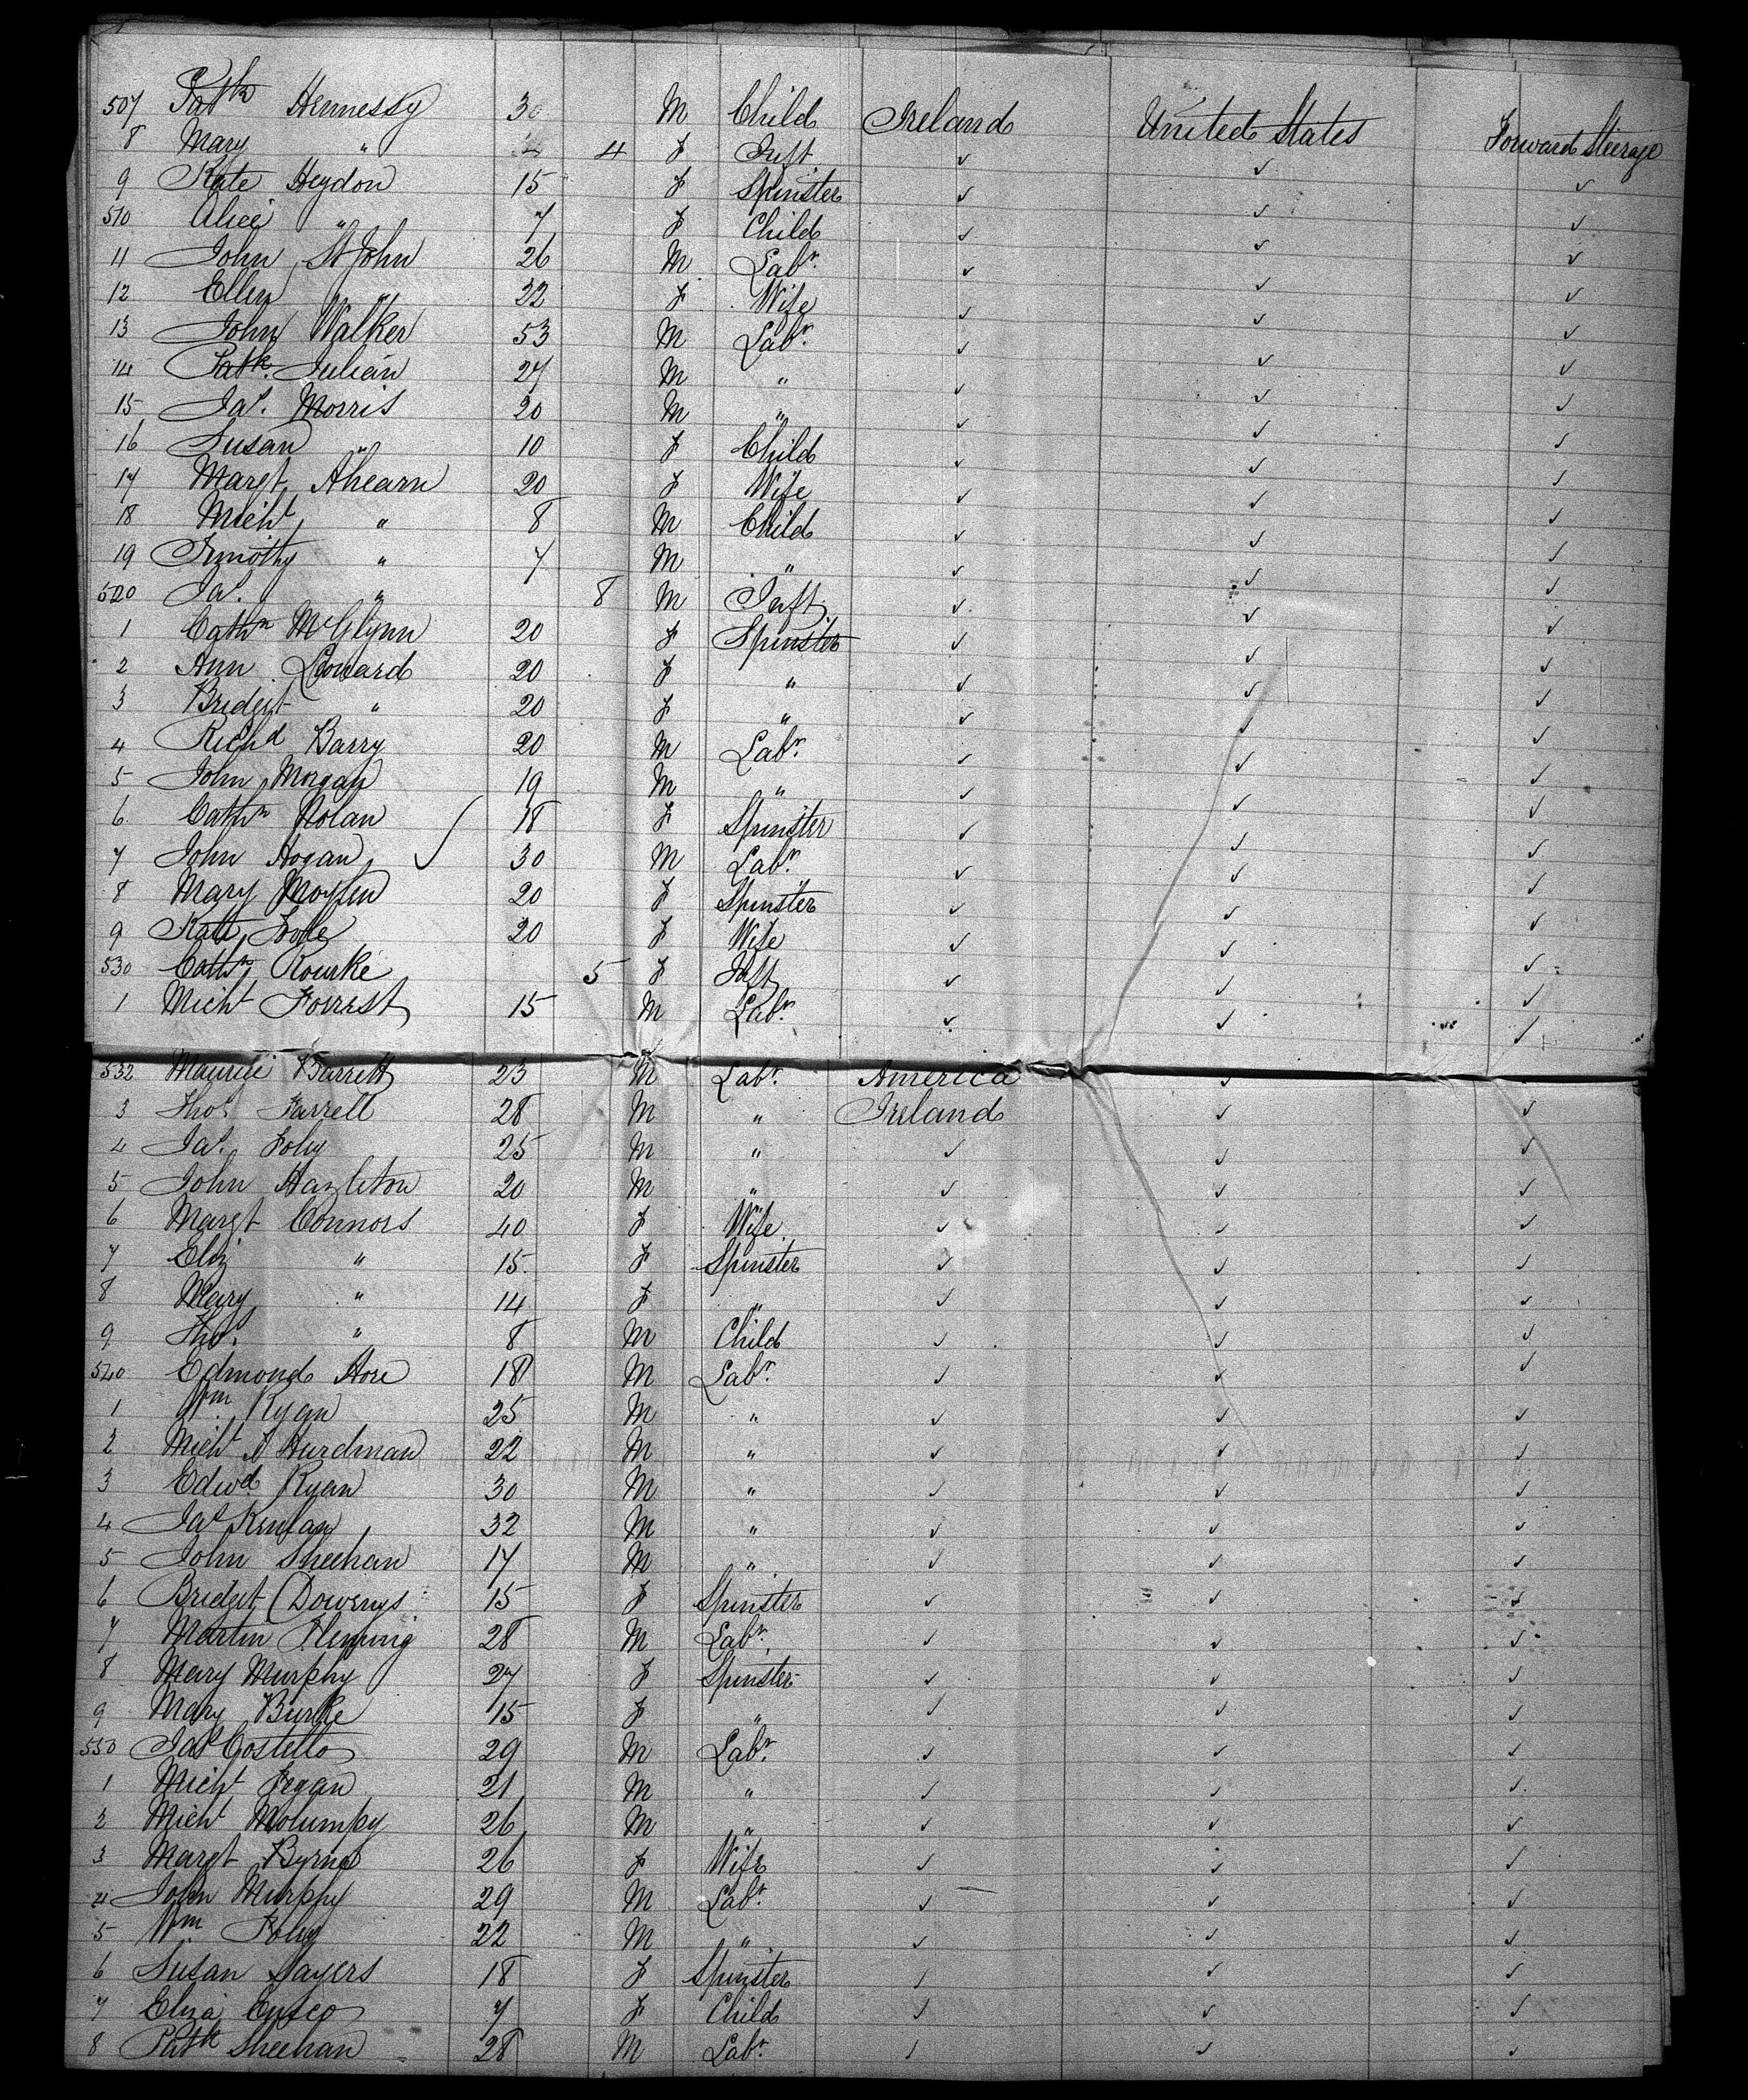 507 Patk Hennessy 30 M Child Ireland United States Forward Steerage
8 Mary " 4 F Inft ✓ ✓ ✓
9 Kate Heydon 15 F Spinster ✓ ✓ ✓
510 Alice " 7 F Child ✓ ✓ ✓
11 John St John 26 M Labr. ✓ ✓ ✓
12 Ellen " 22 F Wife ✓ ✓ ✓
13 John Walker 53 M Labr. ✓ ✓ ✓
14 Patk. Julian 27 M " ✓ ✓ ✓
15 Jas. Morris 20 M " ✓ ✓ ✓
16 Susan " 10 F Child ✓ ✓ ✓
17 Margt Ahearn 20 F Wife ✓ ✓ ✓
18 Michl " 8 M Child ✓ ✓ ✓
19 Timothy " 7 M " ✓ ✓ ✓
520 Jas. " 8 M Inft ✓ ✓ ✓
1 Cathn McGlynn 20 F Spinster ✓ ✓ ✓
2 Ann Leonard 20 F " ✓ ✓ ✓
3 Bridget " 20 F " ✓ ✓ ✓
4 Richd Barry 20 M Labr. ✓ ✓ ✓
5 John Morgan 19 M " ✓ ✓ ✓
6 Cathn Nolan 18 F Spinster ✓ ✓ ✓
7 John Hogan ✓ 30 M Labr. ✓ ✓ ✓
8 Mary Moylen 20 F Spinster ✓ ✓ ✓
9 Kate 20 F Wife ✓ ✓ ✓
530 Cathn Rourke 5 F Inft ✓ ✓ ✓
1 Michl Forrest 15 M Labr. ✓ ✓ ✓
532 Maurice Barrett 23 M Labr. America ✓
3 Thos. Farrell 28 M " Ireland ✓ ✓
4 Jas. Foley 25 M " ✓ ✓ ✓
5 John Hazleton 20 M " ✓ ✓ ✓
6 Margt Connors 40 F Wife ✓ ✓ ✓
7 Eliz " 15 F Spinster ✓ ✓ ✓
8 Mary " 14 F " ✓ ✓ ✓
9 Thos. " 8 M Child ✓ ✓ ✓
540 Edmond Hore 18 M Labr. ✓ ✓ ✓
1 Wm Ryan 25 M " ✓ ✓ ✓
2 Michl Hurdman 22 M " ✓ ✓ ✓
3 Edwd Ryan 30 M " ✓ ✓ ✓
4 Jas Kenlan 32 M " ✓ ✓ ✓
5 John Sheehan 17 M " ✓ ✓ ✓
6 Bridget 15 F Spinster ✓ ✓ ✓
7 Martin Fleming 28 M Labr. ✓ ✓ ✓
8 Mary Murphy 27 F Spinster ✓ ✓ ✓
9 Mary Burke 15 F " ✓ ✓ ✓
550 Jas Costello 29 M Labr. ✓ ✓ ✓
1 Michl Fegan 21 M " ✓ ✓ ✓
2 Michl Molumpy 26 M " ✓ ✓ ✓
3 Margt Byrne 26 F Wife ✓ ✓ ✓
4 John Murphy 29 M Labr. ✓ ✓ ✓
5 Wm Foley 22 M " ✓ ✓ ✓
6 Susan Sayers 18 F Spinster ✓ ✓ ✓
7 Eliza Cusco 7 F Child ✓ ✓ ✓
8 Patk Sheehan 28 M Labr. ✓ ✓ ✓